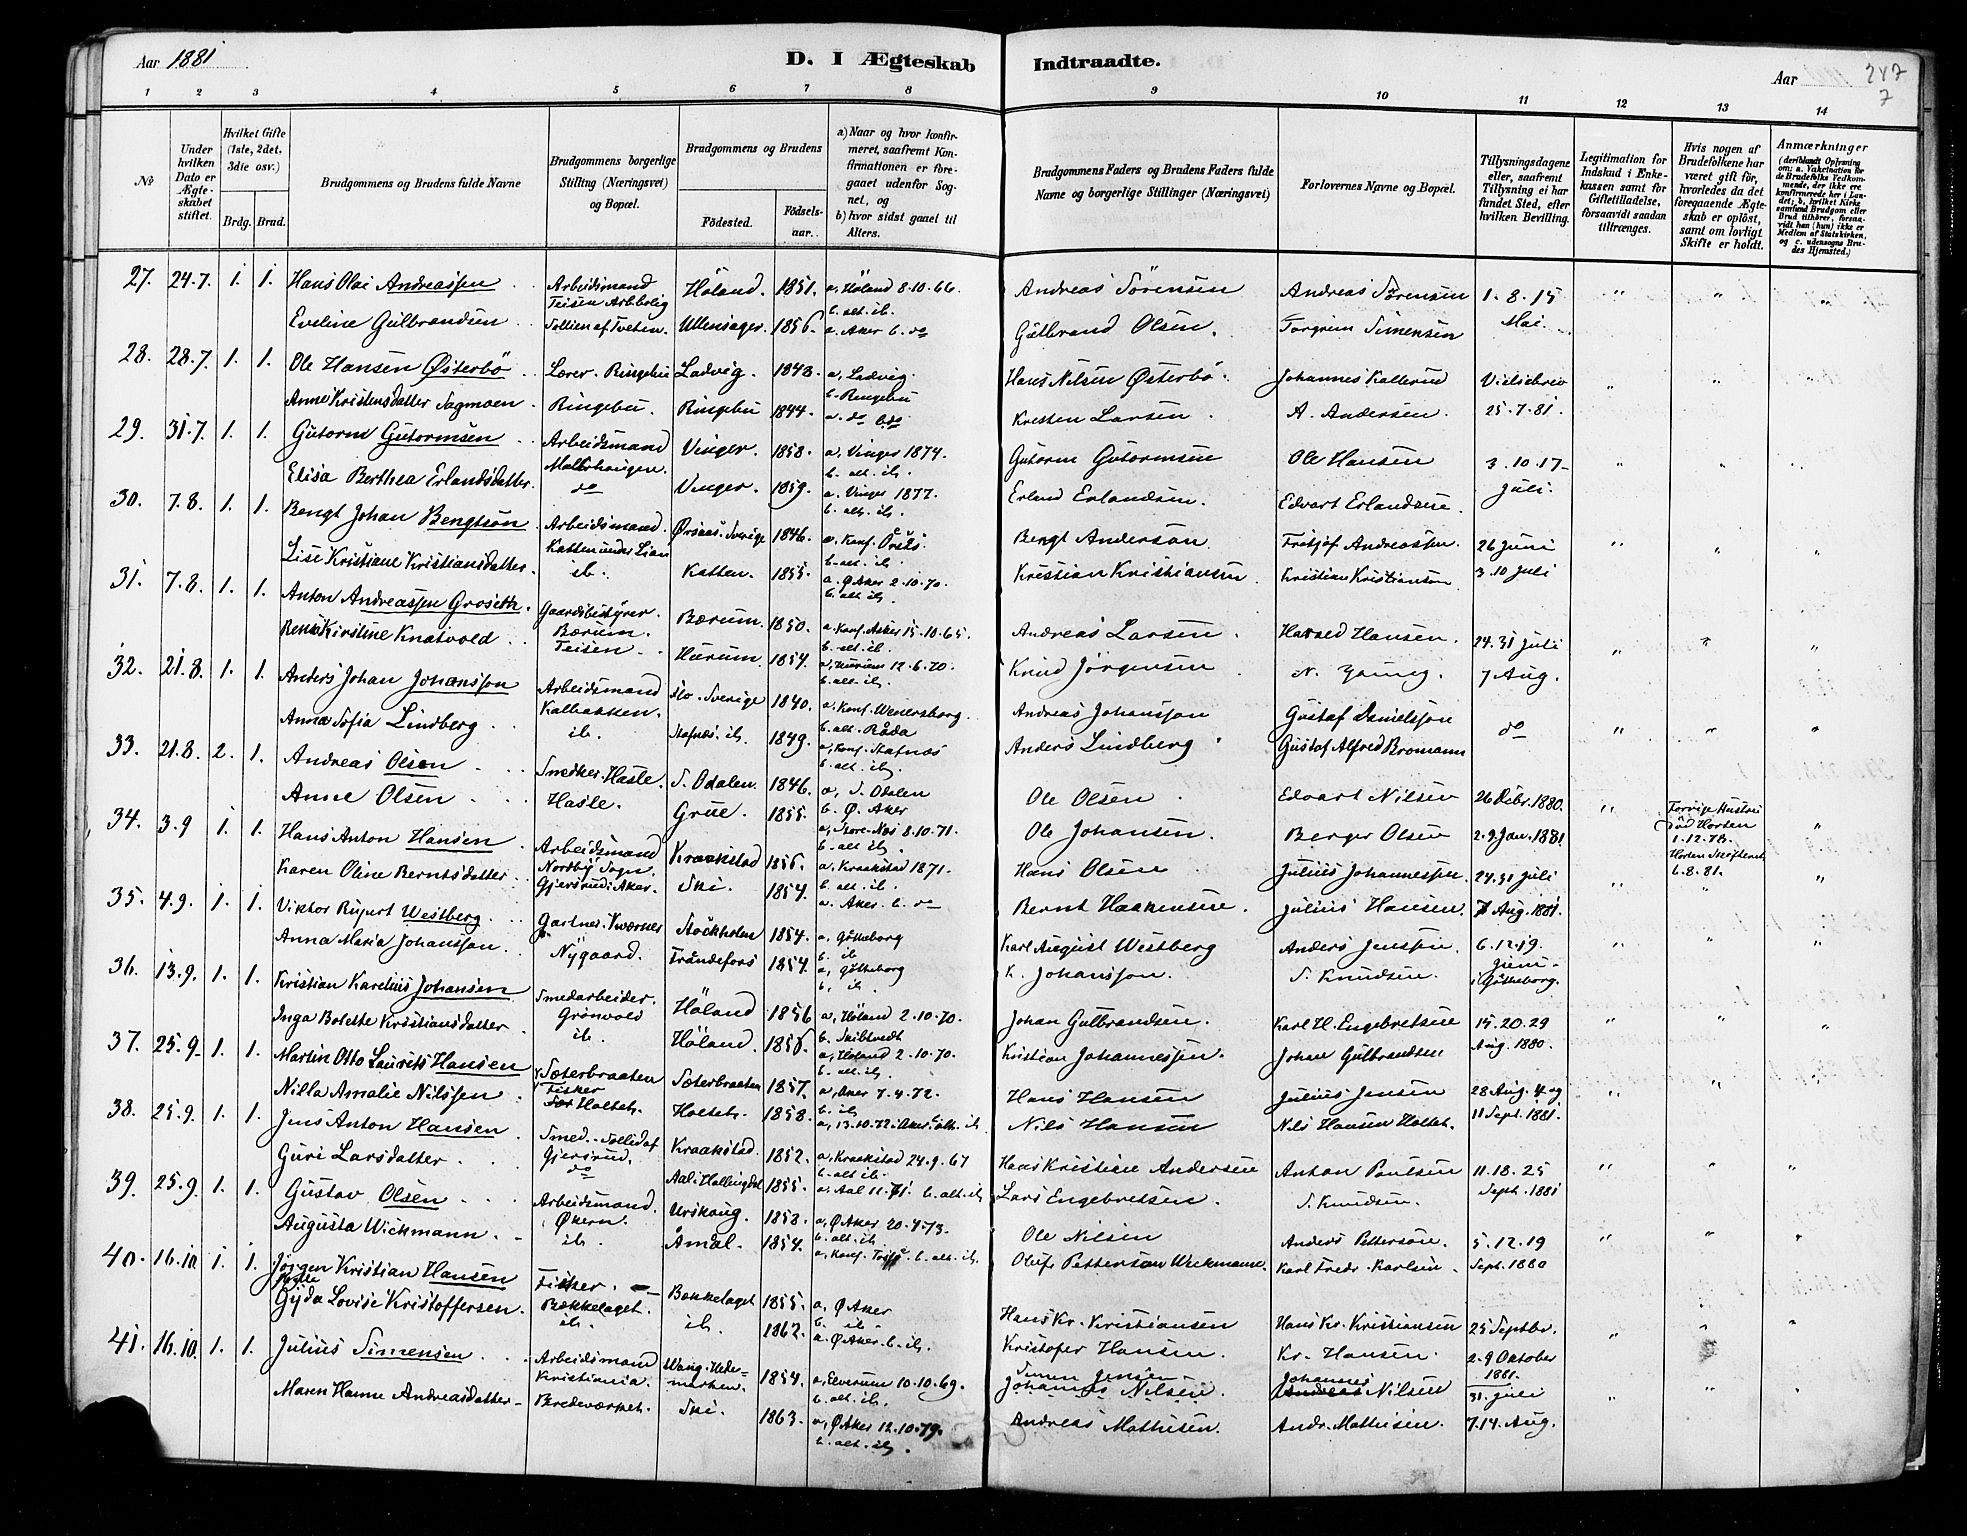 Aar 1881
D. I Ægteskab Indtraadte.
Aar
247
7
1 2 3 4 5 6 7 8 9 10 11 12 13 14
No
Under hvilken Dato er Ægteskabet stiftet.
Hvilket Gifte (1ste, 2det, 3die osv.)
Brdg. Brud.
Brudgommens og Brudens fulde Navne
Brudgommens borgerlige Stilling (Næringsvei) og Bopæl.
Brudgommens og Brudens
Fødested. Fødselsaar.
a) Naar og hvor konfirmeret, saafremt Konfirmationen er foregaaet udenfor Sognet, og
b) hvor sidst gaaet til Alters.
Brudgommens Faders og Brudens Faders fulde Navne og borgerlige Stillinger (Næringsvei)
Forlovernes Navne og Bopæl.
Tillysningsdagene eller, saafremt Tillysning ei har fundet Sted, efter hvilken Bevilling.
Legitimation for Indskud i Enkekassen samt for Giftetilladelse, forsaavidt saadan tiltrænges.
Hvis nogen af Brudefolkene har været gift før, hvorledes da det foregaaende Ægteskab er opløst, samt om lovligt Skifte er holdt.
Anmærkninger
(deriblandt Oplysning om: a. Vakcination for de Brudefolks Vedkommende, der ikke ere konfirmerede her i Landet; b. hvilket Kirkesamfund Brudgom eller Brud tilhører, forsaavidt han (hun) ikke er Medlem af Statskirken, og c. udensogns Brudes Hjemsted.)
27. 24.7. 1. 1. Hans Olai Andreassen Arbeidsmand Teisen Arbbolig Höland. 1851. a, Höland 8.10.66. b. alt. ib. Andreas Sörensen Andreas Sörensen 1. 8. 15 Mai.
Eveline Gulbrandsen Tollien af Tveten. Ullensager. 1856. a. Aker b. do Gulbrand Olsen. Torgrim Simensen
28. 28.7. 1. 1. Ole Hansen Østerbö Lærer. Ringebu Ladvig. 1848. a, Ladvig. b. Ringebu Hans Nilsen Østerbö. Johannes Kallerud Vielsebrev 25.7.81.
Anne Kristensdatter Sagmoen. Ringebu. Ringebu 1844. a. do b. do Kresten Larsen. A. Andersen.
29. 31.7. 1. 1. Gutorm Gutormsen Arbeidsmand Malerhaugen. Vinger. 1858. a, Vinger 1874. b. alt. ib. Gutorm Gutormsen Ole Hansen 3. 10. 17 Juli.
Elisa Berthea Erlandsdatter. do Vinger. 1859. a. Vinger 1877. b. alt. ib. Erland Erlandsen. Edvart Erlandsen.
30. 7.8. 1. 1. Bengt Johan Bengtson Arbeidsmand. Katten under Lian Sverige 1846. a, Konf. b. alt. ib. Bengt Anderson Fretjof Andreassen. 26 Juni 3. 10 Juli
Lise Kristiane Kristiansdatter. ib. Katten. 1855. a. Ø Aker 2.10.70. b. alt. ib. Kristian Kristiansen Kristian Kristiansen
31. 7.8. 1. 1. Anton Andreassen Groseth. Gaardsbestyrer. Bærum. Bærum. 1850. a. Konf. Asker 15.10.65. b. alt. ib. Andreas Larsen. Harald Hansen. 24. 31 Juli
Kirstine Knatvold Teisen Hurum. 1854. a, Hurum 12.6.70. b. alt. ib. Knud Jörgensen N. Young. 7 Aug.
32. 21.8. 1. 1. Anders Johan Johansson Arbeidsmand Kalbakken. Sverige 1840. a, Konf. Wenersborg. b. alt. Råda Andreas Johansson Gustaf Danielsson do
Anna Sofia Lindberg. ib. Stafnäs. ib. 1849. a, Konf. Stafnäs b. alt. ib. Anders Lindberg Gustaf Alfred Bromann
33. 21.8. 2. 1. Andreas Olsen Smedker. Hasle. S. Odalen. 1846. a, S. Odalen b. Ø. Aker Ole Olsen Edvart Nilsen 26 Debr. 1880. Forrige Hustru död Horten 1.12.78. Horten Skifteret 6.8.81.
Anne Olsen Hasle. Grue. 1855. a, Store-Næs 8.10.71. b. alt. ib. Ole Johansen. Berger Olsen 2. 9. Jan. 1881.
34. 3.9 1. 1. Hans Anton Hansen Arbeidsmand Nordby Sogn. Kraakstad 1856. a, Kraakstad 1871. b. alt. ib. Hans Olsen Julius Johannessen 24. 31 Juli
Karen Oline Berntsdatter Gjersrud i Aker. Ski. 1854. a. Aker b. do Bernt Haakensen. Julius Hansen. 7 Aug. 1881.
35. 4.9. 1. 1. Viktor Rupert Westberg. Gartner. Kværner Stockholm 1854. a, Götheborg b. ib Karl August Westberg Anders Jenssen. 6. 12. 19. Juni i Götheborg.
Anna Maria Johansson. Nygaard. Frändefors 1854. a, Götheborg b. ib. K. Johansson. S. Knudsen.
36. 13.9. 1. 1. Kristian Karelius Johansen Smedarbeider. Grönvold Höland 1856 a, Höland 2.10.70. b. Skibtvedt Johan Gulbrandsen. Karl H. Engebretsen 15. 20. 29 Aug. 1880.
Inga Bolette Kristiansdatter. ib. Höland. 1856. a, Höland 2.10.70. b. alt. ib. Kristian Johannessen. Johan Gulbrandsen
37. 25.9. 1. 1. Martin Otto Laurits Hansen Sæterbraaten Fisker Sæterbraaten 1857. a, Aker 7.4.72. b. ib Hans Hansen Julius Jensen 28 Aug. 4 og 11 Sept. 1881.
Nilla Amalie Nilssen Holteh. Holteh. 1858. a, 13.10.72 i Aker. b. alt. ib. Nils Hansen Nils Hansen Holteh.
38. 25.9. 1. 1. Jens Anton Hansen Smed. Tollid af Gjersrud. Kraakstad. 1852. a, Kraakstad 24.9.67 b. alt ib. Hans Kristian Andersen Anton Poulsen 11. 18. 25 Sept. 1881
Guri Larsdatter do Aal i Hallingdal 1855. a, Aal 11.71. b. alt. ib Lars Engebretsen S. Knudsen.
39. 25.9. 1. 1. Gustav Olsen Arbeidsmand. Økern. Urskoug. 1858. a, Ø Aker 20.4.73. b. alt. ib. Ole Nilsen Anders Petterson. 5. 12. 19 Sept. 1880
Augusta Wickmann. ib. Åmål. 1854. a, Konf. b. alt. ib. Olufs Petterson Wickmann. Karl Fredr. Karlsen
40. 16.10. 1. 1. Jörgen Kristian Hansen Fisker. Bækkelaget. Bækkelaget 1855. a, Ø Aker b. ib. Hans Kr. Kristiansen Hans Kr. Kristiansen 25 Septbr.
Gyda Lovise Kristoffersen. ib. ib. 1862. a. Ø Aker. b. ib. Kristofer Hansen. Kr. Hansen. 2. 9 Oktober 1881.
41. 16.10. 1. 1. Julius Simensen Arbeidsmand Kristiania. Wang. Hedemarken. 1854. a, Elverum 10.10.69. b. alt. ib. Simen Jensen Johannes Nilsen. Johannes Nilsen 31. Juli
Maren Hanne Andreasdatter Bredeværket. Ski. 1863. a, Ø Aker 12.10.79. b. alt. ib. Andreas Mathisen. Andr. Mathisen. 7. 14. Aug.